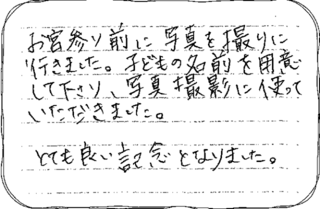 お宮参り前に写真を撮りに
行きました。子どもの名前を用意
して下さり、写真撮影に使って
いただきました。
とても良い記念となりました。